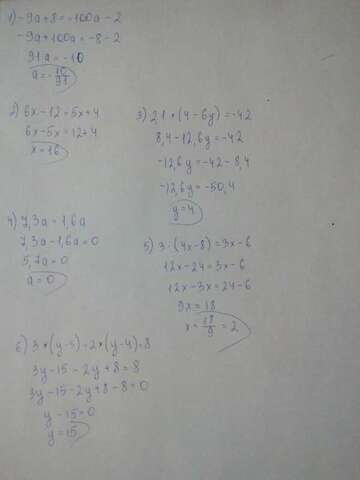 1) -9a+8=-100a-2
-9a+100a=-8-2
91a=-10
a=-10/91
2) 6x-12=5x+4
6x-5x=12+4
x=16
3) 2,1*(4-6y)=-42
8,4-12,6y=-42
-12,6y=-42-8,4
-12,6y=-50,4
y=4
4) 7,3a=1,6a
7,3a-1,6a=0
5,7a=0
a=0
5) 3·(4x-8)=3x-6
12x-24=3x-6
12x-3x=24-6
9x=18
x=18/9=2
6) 3*(y-5)-2*(y-4)=8
3y-15-2y+8=8
3y-15-2y+8-8=0
y-15=0
y=15